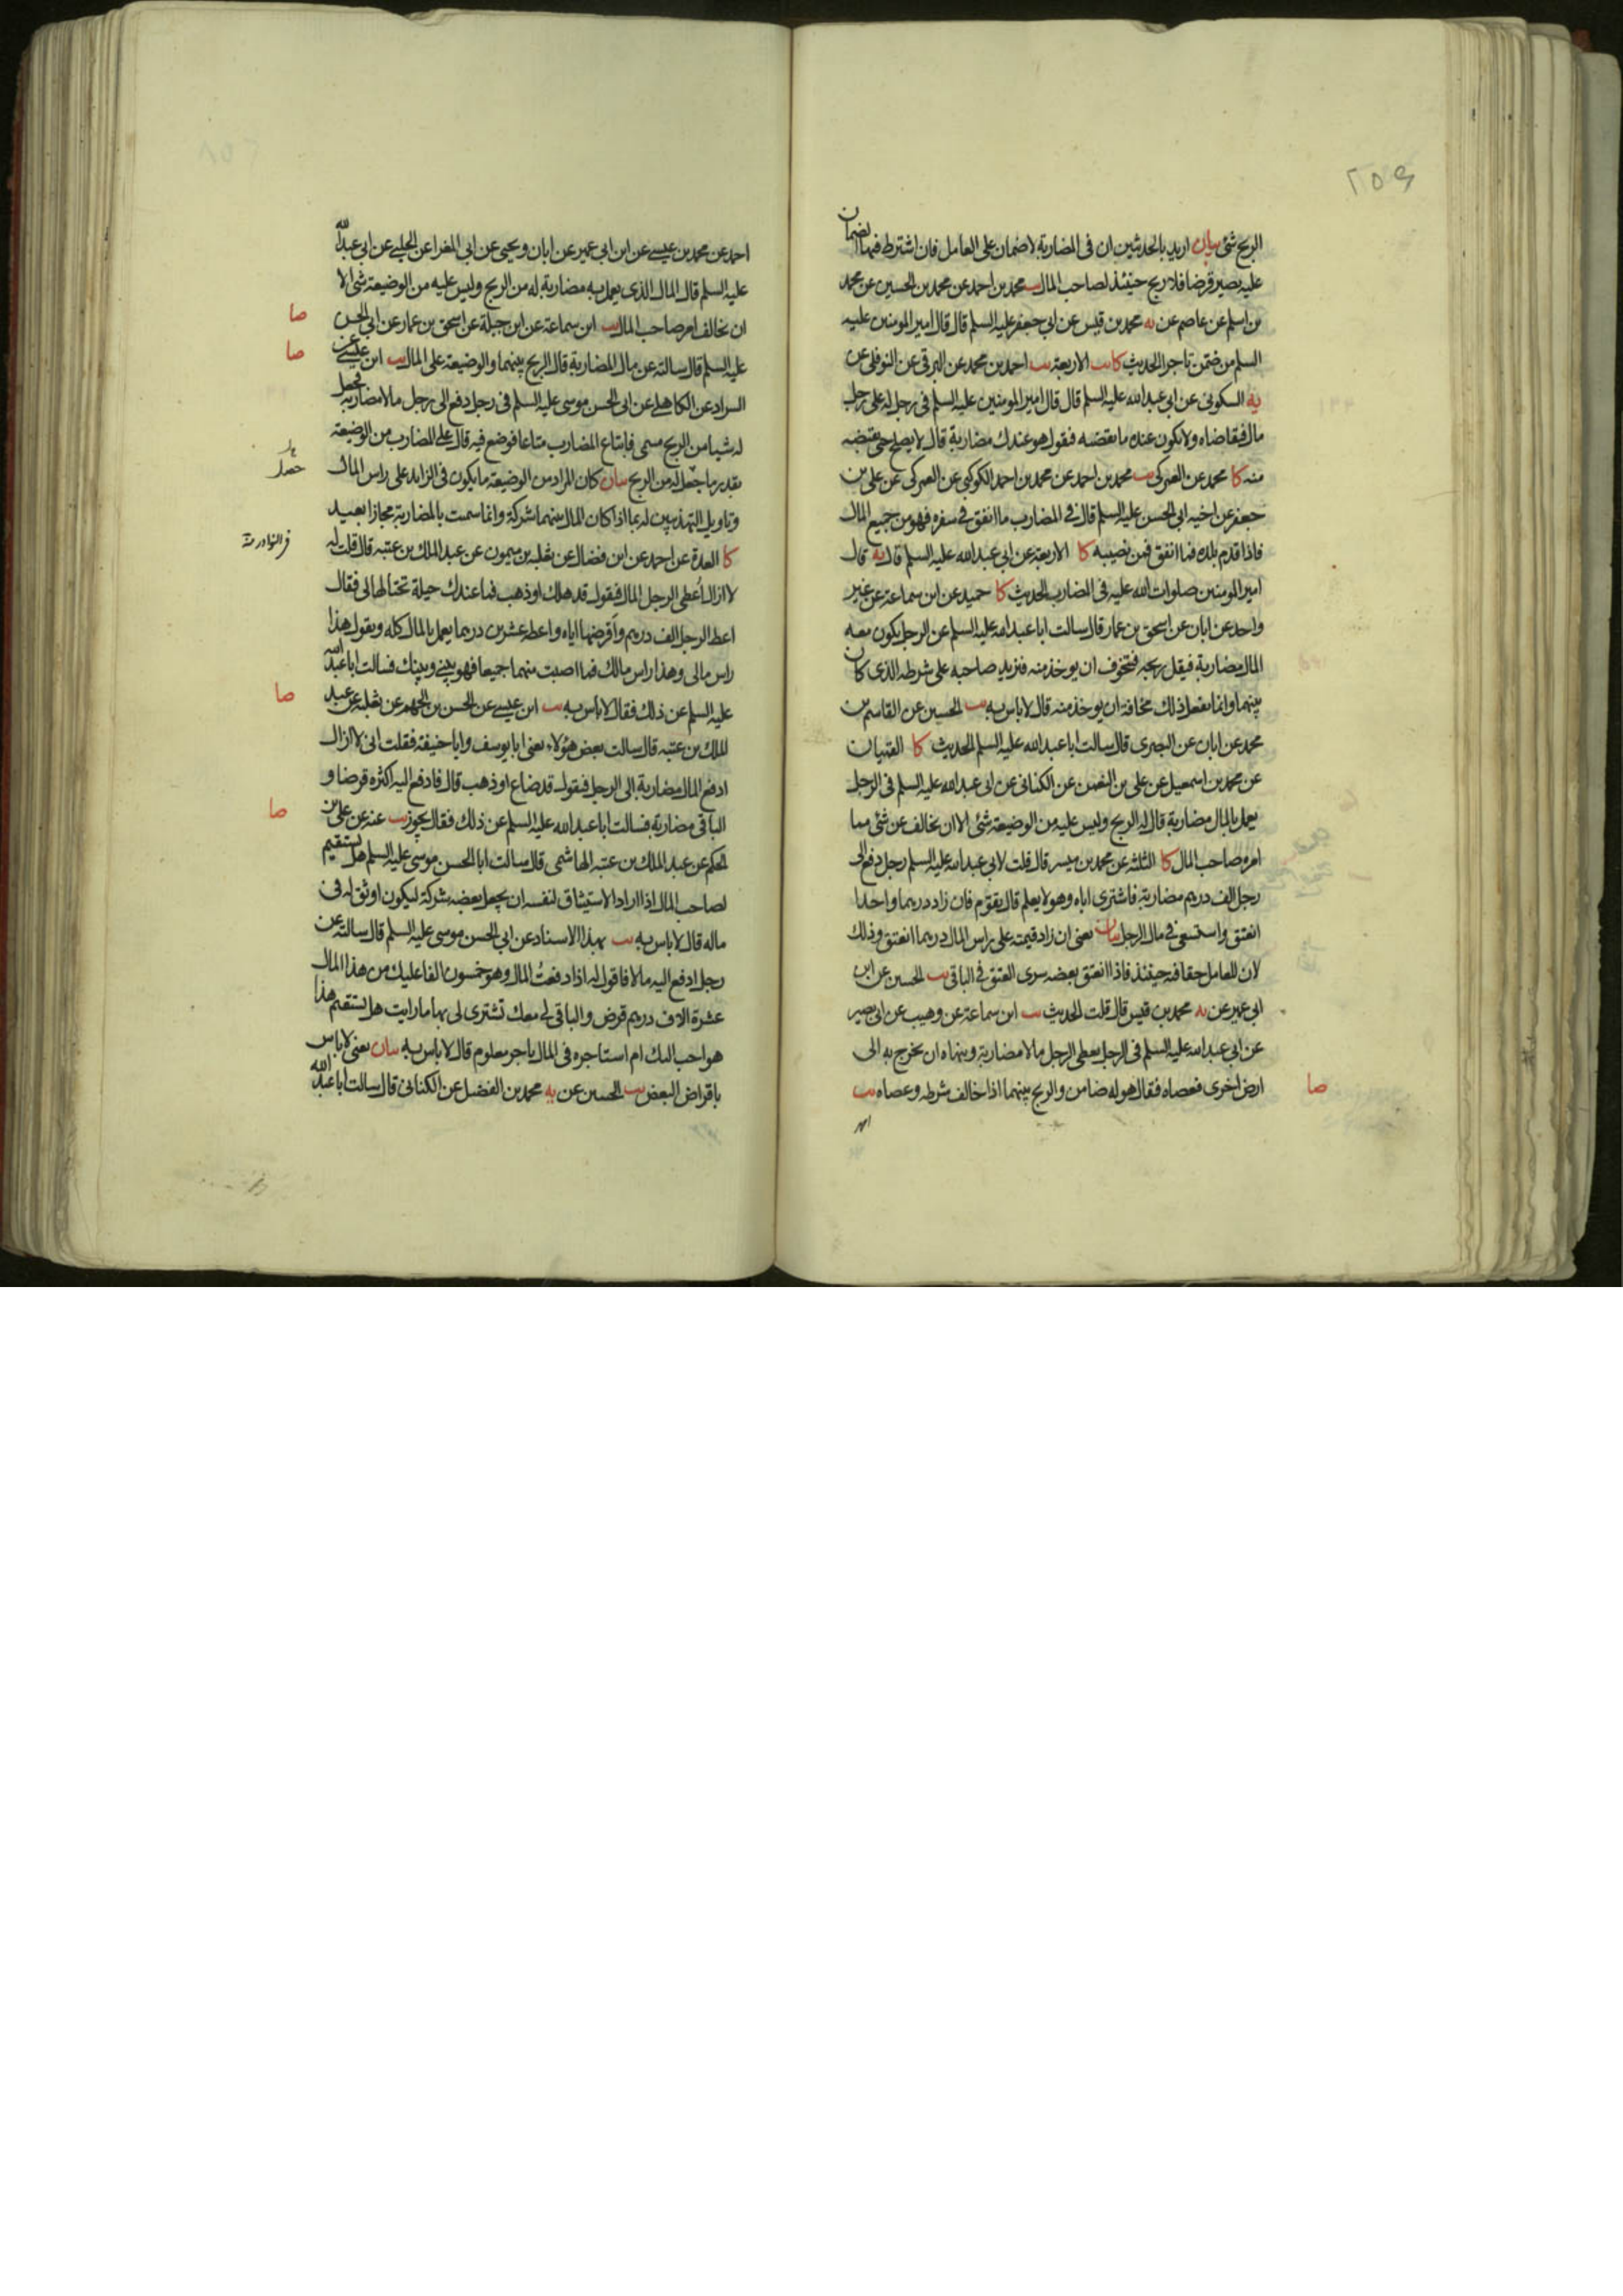 ٢٥٩
الربح شئ بيان اريد بالحديثين ان فى المضاربة لا ضمان على العامل فان اشترط فيها الضمان
عليه يصير قرضا فلا ربح حينئذ لصاحب المال يب محمد بن احمد عن محمد بن الحسين عن محمد
بن اسلم عن عاصم عن يه محمد بن قيس عن ابي جعفر عليه السلم قال قال امير المومنين عليه
السلم من ضمن تاجرا الحديث كا يب الاربعة يب احمد بن محمد عن البرقى عن النوفلى عن
يه السكونى عن ابي عبد الله عليه السلم قال قال امير المومنين عليه السلم فى رجل له على رجل
مال فيقاضاه ولا يكون عنده ما يقضيه فيقول هو عندك مضاربة قال لا يصلح حتى يقبضه
منه كا محمد عن العمركى يب محمد بن احمد عن محمد بن احمد الكوكبى عن العمركى عن على بن
جعفر عن اخيه ابى الحسن عليه السلم قال فى المضارب ما انفق فى سفره فهو من جميع المال
فاذا قدم بلده فما انفق فمن نصيبه كا الاربعة عن ابى عبد الله عليه السلم قال يه قال
امير المومنين صلوات الله عليه فى المضارب الحديث كا حميد عن ابن سماعة عن غير
واحد عن ابان عن اسحق بن عمار قال سالت ابا عبد الله عليه السلم عن الرجل يكون معه
المال مضاربة فيقل ربحه فتخوف ان يوخذ منه فيزيد صاحبه على شرطه الذى كان
بينهما وانما يفعل ذلك مخافة ان يوخذ منه قال لا باس به يب الحسين عن القاسم بن
محمد عن ابان عن البصرى قال سالت ابا عبد الله عليه السلم الحديث كا القميان
عن محمد بن اسمعيل عن على بن النعمن عن الكنانى عن ابى عبد الله عليه السلم فى الرجل
يعمل بالمال مضاربة قال له الربح وليس عليه من الوضيعة شئ الا ان يخالف عن شئ مما
امره صاحب المال كا الثلثة عن محمد بن ميسر قال قلت لابي عبد الله عليه السلم رجل دفع الى
رجل الف درهم مضاربة فاشترى اباه وهو لا يعلم قال يقوم فان زاد درهما واحدا
انعتق واستسعى فى مال الرجل بيان يعنى ان زاد قيمته على راس المال درهما انعتق وذلك
لان للعامل حقا فيه حينئذ فاذا انعتق بعضه سرى العتق فى الباقى يب الحسين عن ابن
ابي عمير عن يه محمد بن قيس قال قلت الحديث يب ابن سماعة عن وهيب عن ابى بصير
عن ابي عبد الله عليه السلم فى الرجل يعطى الرجل مالا مضاربة وينهاه ان يخرج به الى
ارض اخرى فعصاه فقال هو له ضامن والربح بينهما اذا خالف شرطه وعصاه يب
صا
احمد عن محمد بن عيسى عن ابن ابي عمير عن ابان ويحيى عن ابي المغرا عن الحلبى عن ابي عبد الله
عليه السلم قال المال الذى يعمل به مضاربة له من الربح وليس عليه من الوضيعة شئ الا
ان يخالف امر صاحب المال يب ابن سماعة عن ابن جبلة عن اسحق بن عمار عن ابي الحسن
صا
عليه السلم قال سالته عن مال المضاربة قال الربح بينهما والوضيعة على المال يب ابن عيسى عن
صا
السراد عن الكاهلى عن ابى الحسن موسى عليه السلم فى رجل دفع الى رجل مالا مضاربة فجعل
له شيا من الربح مسمى فابتاع المضارب متاعا فوضع فيه قال على المضارب من الوضيعة
بقدر ما جعل له من الربح بيان كان المراد من الوضيعة ما يكون فى الزايد على راس المال
وتاويل التهذيبين له بما اذا كان المال بينهما شركة وانما سميت بالمضاربة مجازا بعيد
كا العدة عن احمد عن ابن فضال عن ثعلبه بن ميمون عن عبد الملك بن عتبه قال قلت له
لا ازال اعطى الرجل المال فيقول قد هلك او ذهب فما عندك حيلة تحتالها لى فقال
اعط الرجل الف درهم واقرضها اياه واعطه عشرين درهما يعمل بالمال كله ويقول هذا
راس مالى وهذا راس مالك فما اصبت منهما جميعا فهو بينى وبينك فسالت ابا عبد الله
عليه السلم عن ذلك فقال لا باس به يب ابن عيسى عن الحسن بن الجهم عن ثعلبه عن عبد
صا
الملك بن عتبه قال سالت بعض هؤلاء يعنى ابا يوسف وابا حنيفة فقلت انى لا ازال
ادفع المال مضاربة الى الرجل فيقول قد ضاع او ذهب قال فادفع اليه اكثره قرضا و
الباقى مضاربة فسالت ابا عبد الله عليه السلم عن ذلك فقال يجوز يب عنه عن على بن
صا
الحكم عن عبد الملك بن عتبه الهاشمى قال سالت ابا الحسن موسى عليه السلم هل يستقيم
لصاحب المال اذا اراد الاستيثاق لنفسه ان يجعل بعضه شركة ليكون اوثق له فى
ماله قال لا باس به يب بهذا الاسناد عن ابي الحسن موسى عليه السلم قال سالته عن
رجل ادفع اليه مالا فاقول له اذا دفعت المال وهو خمسون الفا عليك من هذا المال
عشرة الاف درهم قرض والباقى لى معك تشترى لى بها ما رايت هل يستقيم هذا
هو احب اليك ام استاجره فى المال باجر معلوم قال لا باس به بيان يعنى لا باس
باقراض البعض يب الحسين عن يه محمد بن الفضيل عن الكنانى قال سالت ابا عبد الله